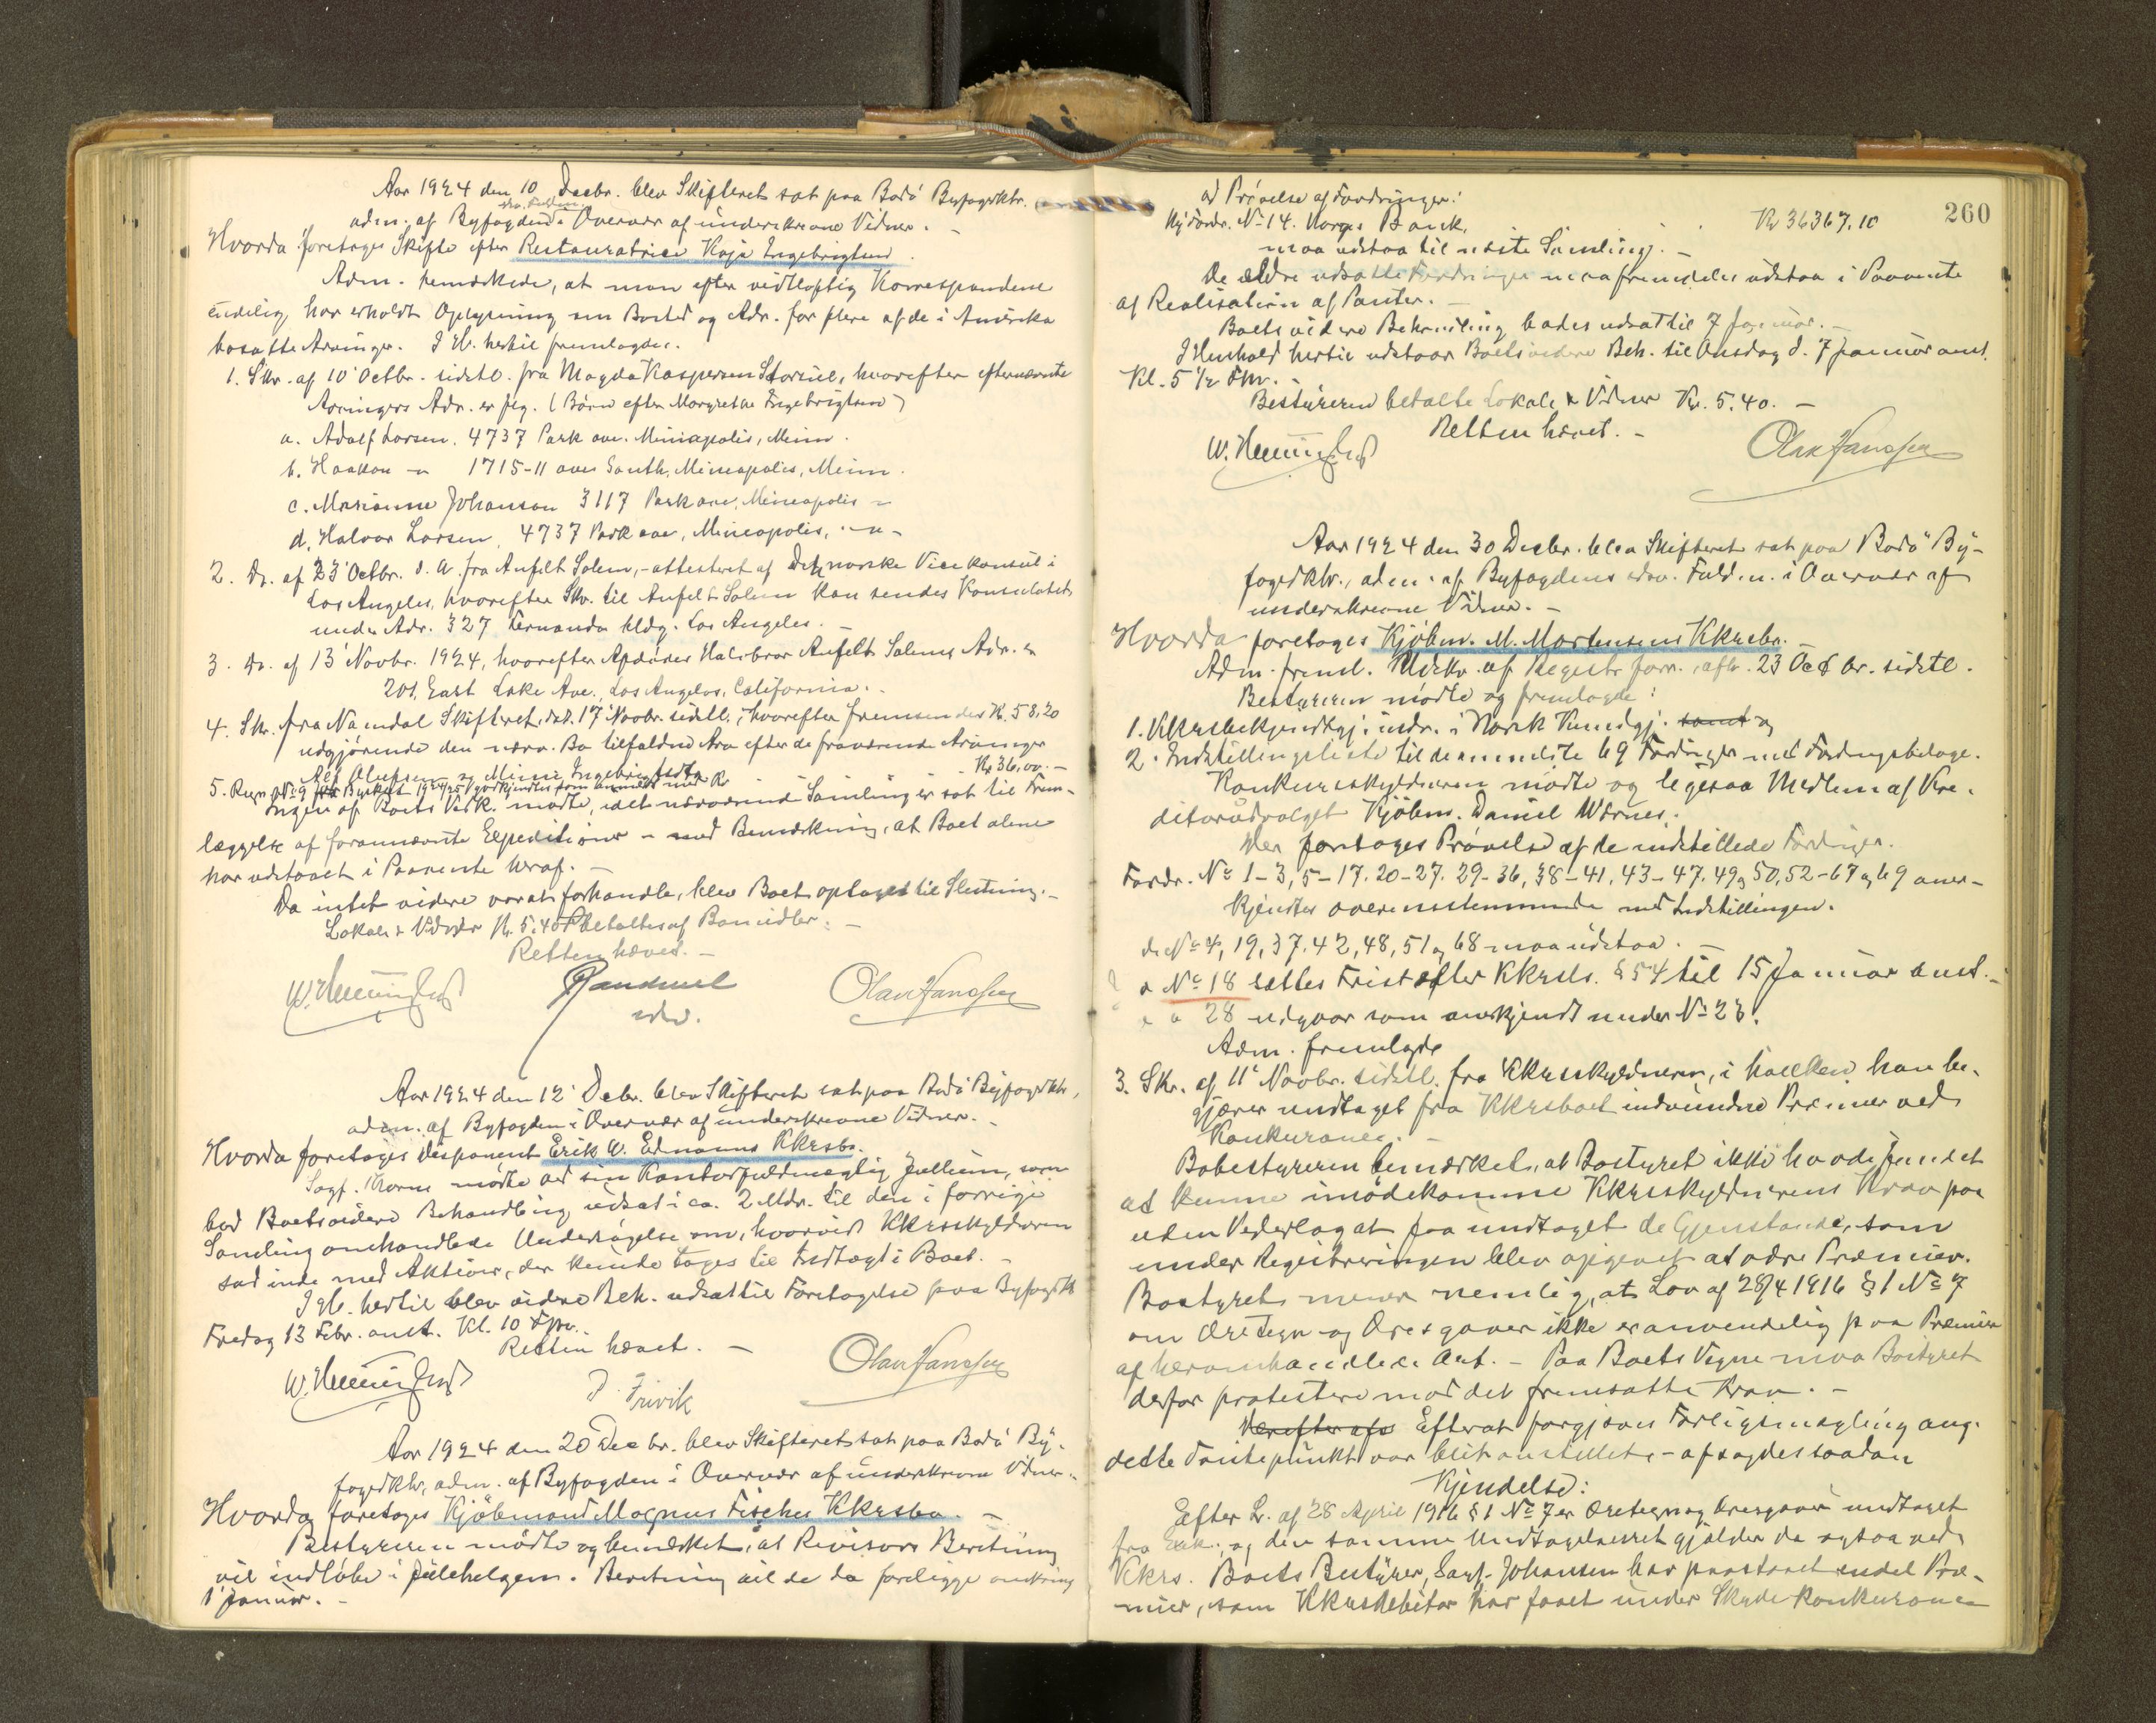 Aar 1924 den 10 Decbr. blev Skifteret sat paa Bodø Byfogdktr.
adm. af Byfogden i Overvær af underskrevne Vidner. -
Hvorda foretages Skifte efter Restauratrice Kaja Ingebrigtsen
Adm. bemærkede, at man efter vidtløftig Korrespondense
endelig har erholdt Oplysning om Bosted og Adr. for flere af de i Amerika
bosatte Arvinger. I H. hertil fremlagdes.
1. Skr. af 10' Octbr. sidstl. fra Magda Kaspersen Storiul, hvorefter efternævnte
Arvingers Adr. er flg. (Børn efter Margrethe Ingebrigtsen)
a. Adolf Larsen. 4737 Park ave. Mineapolis, Minn.
b. Haakon -"- 1715-11 ave South, Mineapolis, Minn.
c. Marianne Johanson 3117 Park ave, Mineapolis -"-
d. Halvor Larsen, 4737 Park ave, Mineapolis, -"-
2. Do. af 23' Octbr. d. A. fra Anfelt Solem, - attesteret af Det norske Vicekonsul i
Los Angeles, hvorefter Skr. til Anfelt Solem kan sendes Konsulatet
under Adr. 327 Fernando bldg. Los Angeles. -
3. Do. af 13' Novbr. 1924, hvorefter Afdødes Halvbror Anfelt Solems Adr. er
201, East Lake Ave., Los Angelos, California. -
4. Skr. fra Namdal Skifteret, dat. 17' Novbr. sidstl., hvorefter fremsendes Kr. 58,20
udgjørende den nærv. Bo tilfaldne Arv efter de fraværende Arvinger
Alf Olufsen og Minni Ingebrigtsdtr.
5. Regn. No 9 fra Byskat 1924/25 godkjendtes som anmeldt med Kr Kr 36,00. -
Ingen af Boets Vedk. mødte, idet nærværende Samling er sat til Frem-
læggelse af forannævnte Expeditioner - med Bemærkning, at Boet alene
har udstaaet i Paavente heraf. -
Da intet videre var at forhandle, blev Boet optaget til Slutning. -
Lokale & Vidner Kr. 5,40 betaltes af Bomidler. -
Retten hævet. -
Olav Hanssen
Aar 1924 den 12' Decbr. blev Skifteret sat paa Bodø Byfogdktr,
adm. af Byfogden i Overvær af underskrevne Vidner. -
Hvorda foretoges Disponent Erik W. Edmanns Kkrsbo.
Sagf. Horne mødte ved sin Kontorfuldmægtig Jullum, som
bad Boets videre Behandling udsat i ca. 2 Mdr. til den i forrige
Samling omhandlede Undersøgelse om, hvorvidt Kkrsskyldneren
sad inde med Aktiver, der kunde tages til Indtægt i Boet. -
I H. hertil blev videre Beh. udsat til Foretagelse paa Byfogdktr
Fredag 13 Febr. anst. Kl. 10 Fm.
Retten hævet. -
Olav Hanssen
Aar 1924 den 20 Decbr. blev Skifteret sat paa Bodø By-
fogedktr, adm. af Byfogden i Overvær af underskrevne Vidner. -
Hvorda foretoges Kjøbmand Magnus Fischer Kkrsbo. -
Bestyreren mødte og bemærket, at Revisors Beretning
vil indløbe i Julehelgen. Beretning vil da foreligge omkring
1' Januar. -
260
ad Prøvelse af Fordringer:
Ny Fordr. No 14. Norges Bank, Kr 36367,10
maa udstaa til næste Samling. -
De ældre udsatte Fordringer maa fremdeles udstaa i Paavente
af Realisation af Panter. -
Boets videre Behandling bades udsat til 7 Januar. -
I Henhold hertil udstaar Boets videre Beh. til Onsdag d. 7 Januar anst.
Kl. 5 1/2 Em. -
Bestyreren betalte Lokale & Vidner Kr. 5.40. -
Retten hævet. -
Olav Hanssen
Aar 1924 den 30 Decbr. blev Skifteret sat paa Bodø By-
fogedktr., adm. af Byfogdens edsv. Fuldm. i Overvær af
underskrevne Vidner. -
Hvorda foretoges Kjøbm. M. Mortensens Kkrsbo. -
Adm. freml. Udskr. af Registr.forr. afh. 23 Octbr. sidstl.
Bestyreren mødte og fremlagde:
1. Kkrsbekjendtgj. indr. i Norsk Kundgj. samt og
2. Indstillingsliste til de anmeldte 69 Fordringer med Fordringsbilage.
Konkursskyldneren mødte og ligesaa Medlem af Kre-
ditorudvalget Kjøbm. Daniel Wærnes.
Her foretoges Prøvelse af de indstillede Fordringer.
Fordr. No 1-3, 5-17. 20-27. 29-36, 38-41, 43-47. 49 og 50, 52-67 og 69 aner-
kjendtes overensstemmende med Indstillingen.
do No 4, 19, 37. 42, 48, 51 og 68 maa udstaa. -
" No 18 sattes Frist efter Kkrsls. § 54 til 15 Januar anst. -
" " 28 udgaar som anerkjendt under No 23.
Adm. fremlagde
3. Skr. af 11' Novbr. sidstl. fra Kkrsskyldneren, i hvilken han be-
gjærer undtaget fra Kkrsboet indvundne Præmier ved
Konkurancer. -
Bobestyreren bemærket, at Bostyret ikke havde fundet
at kunne imødekomme Kkrsskyldnerens Krav paa
uden Vederlag at faa undtaget de Gjenstande, som
under Registreringen blev opgivet at være Præmier.
Bostyret mener nemlig, at Lov af 28/4 1916 § 1 No 7
om Ærestegn og Æresgaver ikke er anvendelig paa Præmier
af heromhandlede Art. - Paa Boets Vegne maa Bostyret
derfor protestere mod det fremsatte Krav. -
Herefter afs Efterat forgjæves Forligsmægling ang.
dette Tvistepunkt var blit anstillet, - afsagdes saadan
Kjendelse:
Efter L. af 28 April 1916 § 1 No 7 er Ærestegn og Æresgaver undtaget
fra Exk. og den samme Undtagelsesret gjælder da ogsaa ved
Kkrs. Boets Bestyrer, Sagf. Johansen har paastaaet endel Præ-
mier, som Kkrsdebitor har faaet under Skydekonkurance